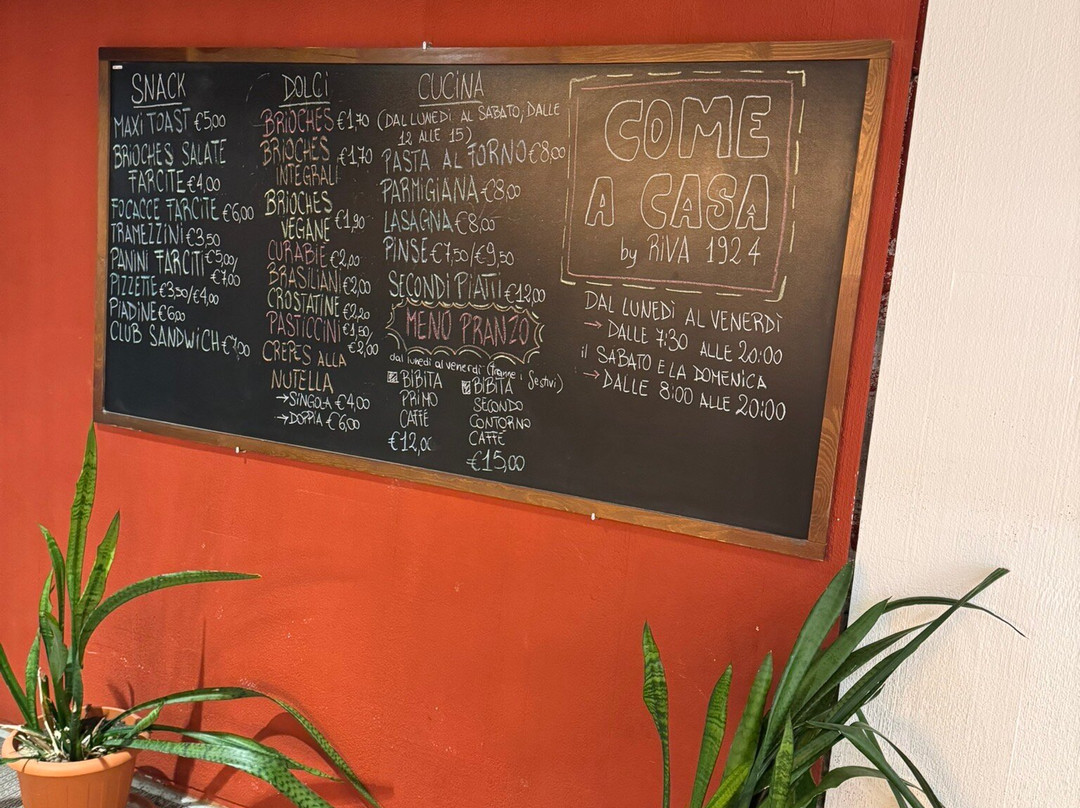 SNACK
MAXI TOAST €5,00
BRIOCHES SALATE
FARCITE €4,00
FOCACCE FARCITE €6,00
TRAMEZZINI €3,50
PANINI FARCITI €5,00/
€7,00
PIZZETTE €3,50/€4,00
PIADINE €6,00
CLUB SANDWICH €7,00
DOLCI
BRIOCHES €1,70
BRIOCHES €1,70
INTEGRALI
BRIOCHES
VEGANE €1,90
CURABIE €2,00
BRASILIANI €2,00
CROSTATINE €2,20
PASTICCINI €1,50
€2,00
CREPES ALLA
NUTELLA
→SINGOLA €4,00
→DOPPIA €6,00
CUCINA
(DAL LUNEDÌ AL SABATO, DALLE
12 ALLE 15)
PASTA AL FORNO €8,00
PARMIGIANA €8,00
LASAGNA €8,00
PINSE €7,50/€9,50
SECONDI PIATTI €12,00
MENÙ PRANZO
dal lunedì al venerdì (tranne i festivi)
BIBITA
PRIMO
CAFFÈ
€12,00
BIBITA
SECONDO
CONTORNO
CAFFÈ
€15,00
COME
A CASA
by RIVA 1924
DAL LUNEDÌ AL VENERDÌ
→ DALLE 7:30 ALLE 20:00
il SABATO E LA DOMENICA
→ DALLE 8:00 ALLE 20:00